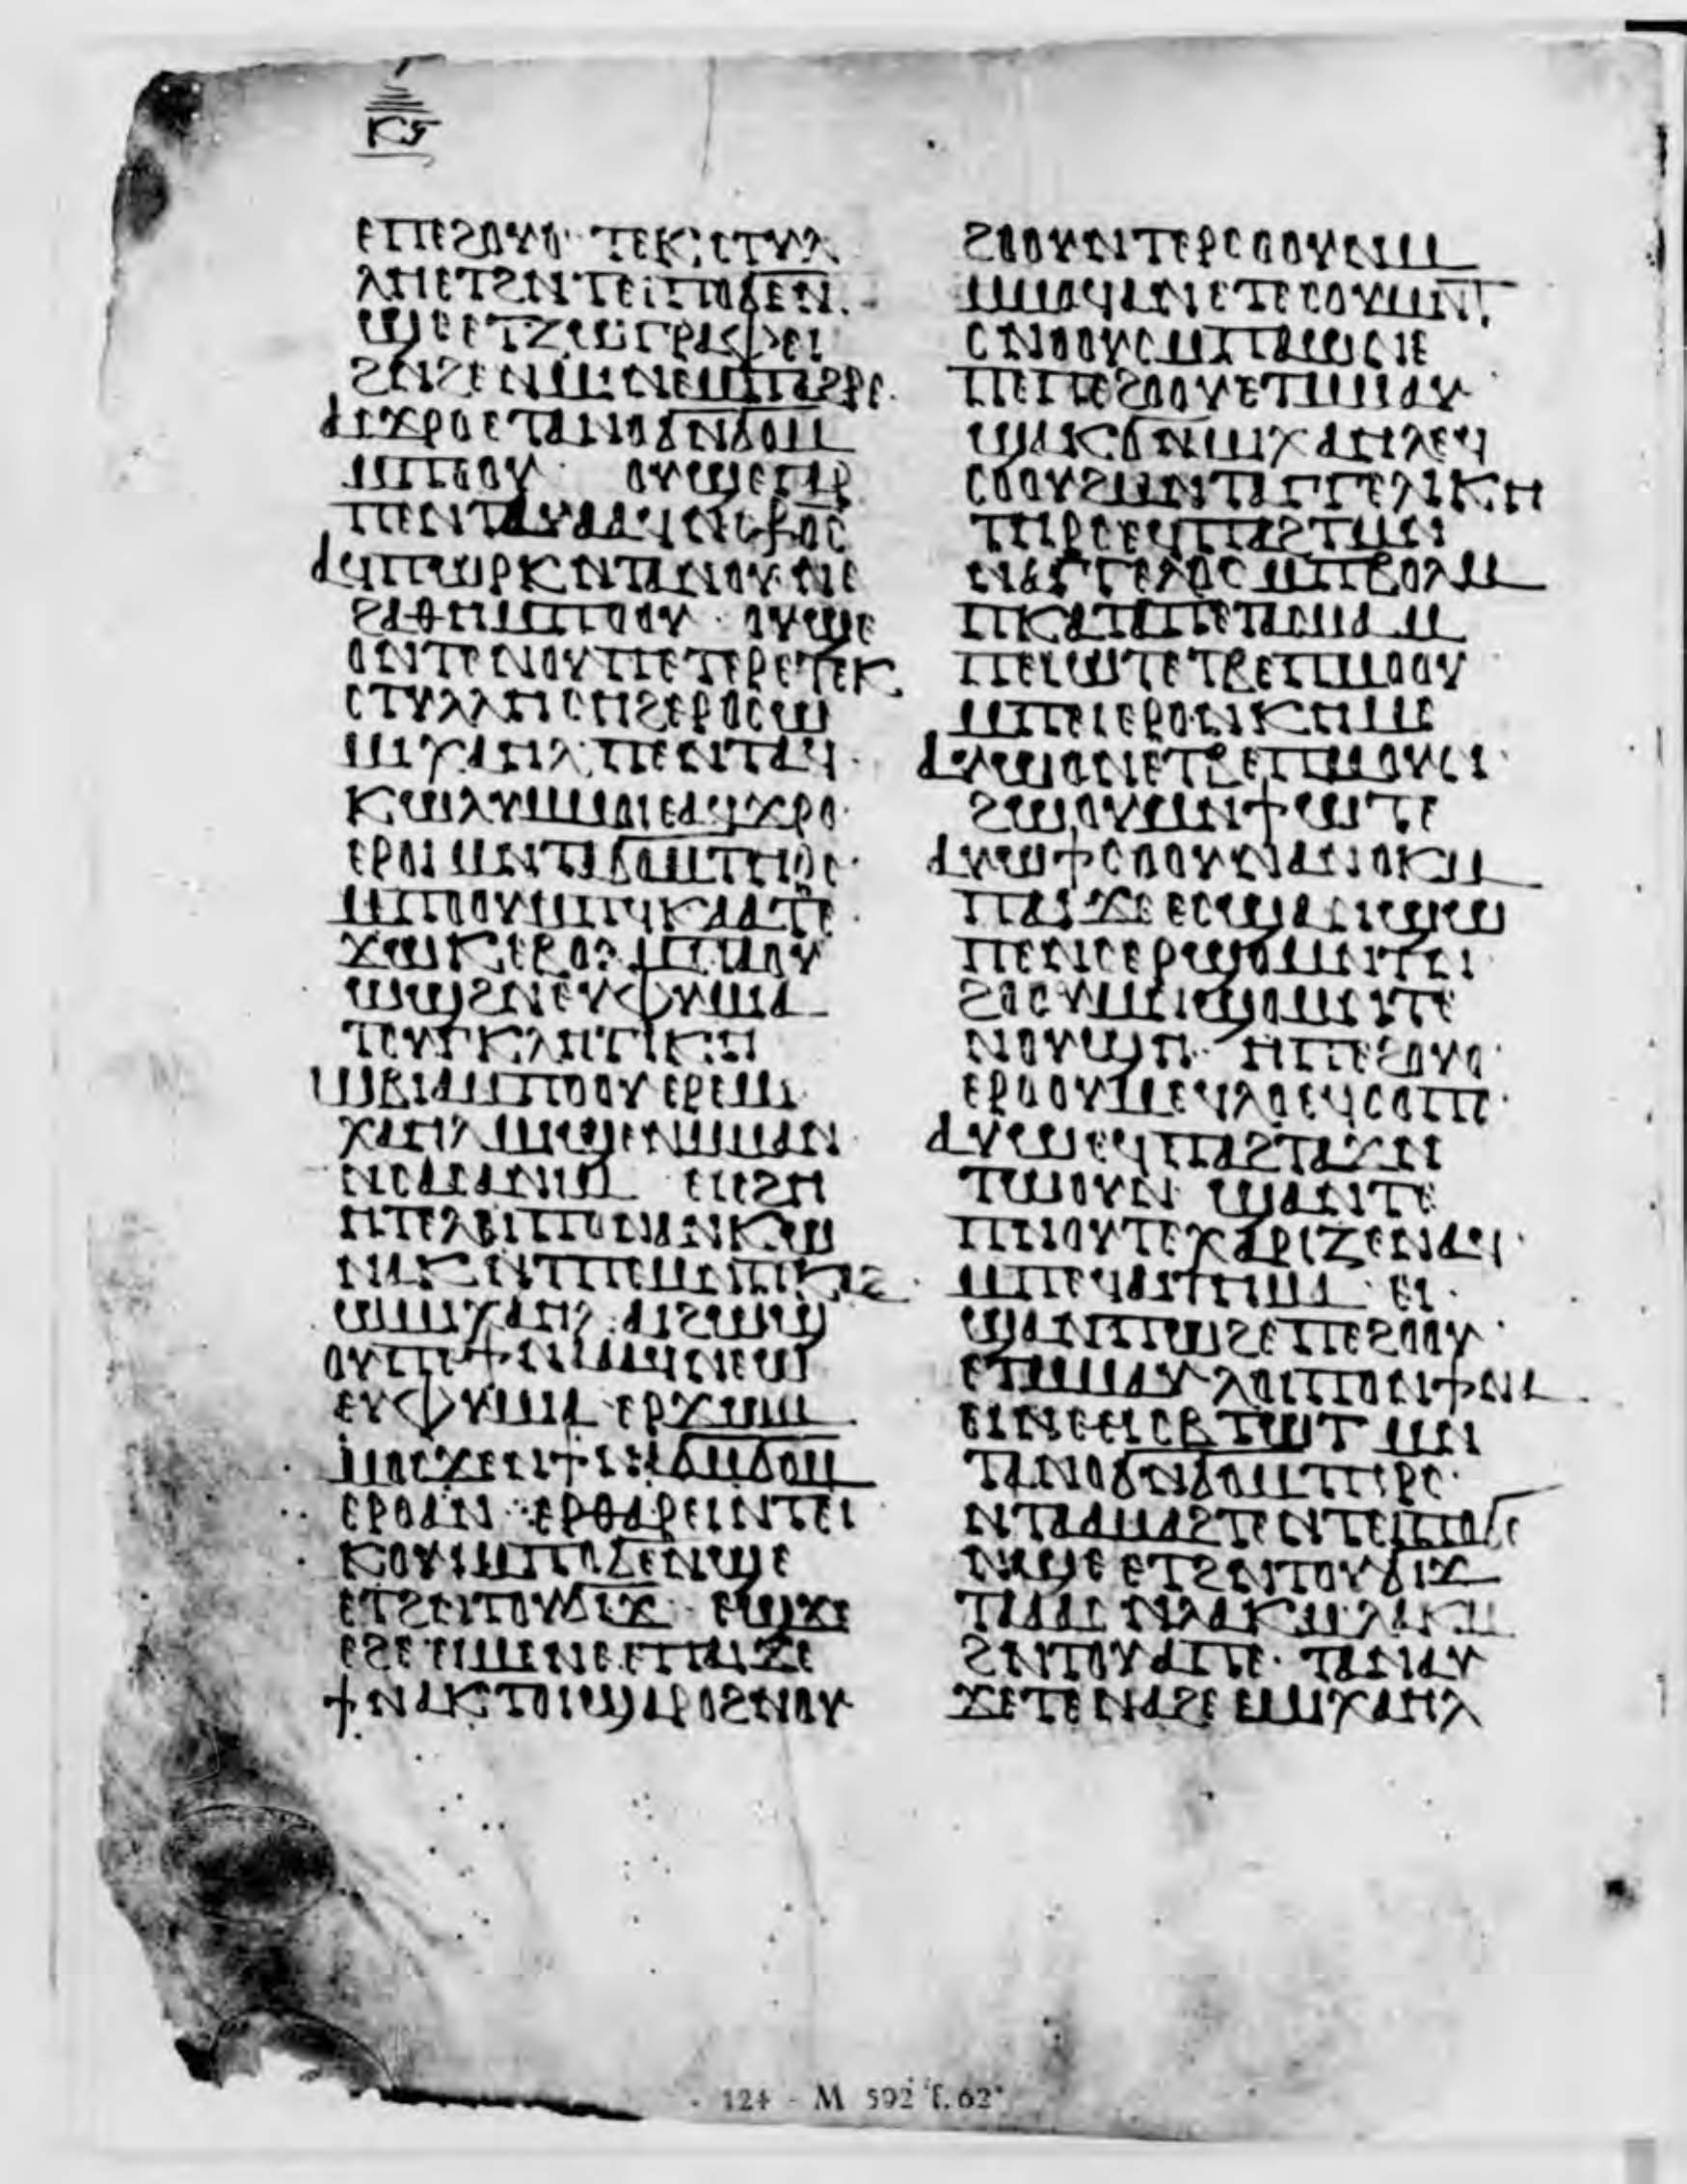 ⲕⲋ
ⲉⲡⲉϩⲟⲩⲟ· ⲧⲉⲕⲥⲧⲩⲗ
ⲗⲏⲉⲧϩⲛⲧⲉⲓⲡⲟϭⲉⲛ
ϣⲉⲉⲧⲍⲱⲅⲣⲁⲫⲉⲓ
ϩⲛϩⲉⲛ
ⲁⲓϫⲣⲟⲉⲧⲁⲛⲟϭⲛϭⲟⲙ
ⲙⲡⲟⲟⲩ· ⲟⲩϣⲉⲡⲉ
ⲡⲉⲛⲧⲁⲩⲁⲁϥⲛⲥⲫⲟⲥ
ⲁϥⲡⲱⲣⲕⲛⲧⲁⲛⲟⲩⲛⲉ
ϩⲁⲑⲏⲙⲡⲟⲟⲩ· ⲟⲩϣⲉ
ⲟⲛⲧⲉⲛⲟⲩⲡⲉⲧⲉⲣⲉⲧⲉⲕ
ⲥⲧⲩⲗⲗⲏⲥⲏϩⲉⲣⲟⲥⲱ
ⲙⲓⲭⲁⲏⲗ ⲡⲉⲛⲧⲁϥ
ⲕⲱⲗⲩⲙⲙⲟⲓⲉⲁϥϫⲣⲟ
ⲉⲣⲟⲓ ⲙⲛⲧⲁϭⲟⲙⲧⲏⲣⲥ·
ⲙⲡⲟⲟⲩⲙⲡϥⲕⲁⲁⲧⲉ
ϫⲱⲕⲉⲃⲟⲗ ⲙⲡⲟⲟⲩ
ⲱϣϩⲛⲉⲩⲫⲩⲙⲓⲁ
ⲧⲥⲩⲅⲕⲗⲏⲧⲓⲕⲏ
ⲱⲃⲓⲁⲙⲡⲟⲟⲩⲉⲣⲉⲙⲓ
ⲭⲁⲏⲗⲙⲓϣⲉⲛⲙⲙⲁⲛ
ⲛⲥⲁⲥⲁⲛⲓⲙ ⲉⲓⲉϩⲏ
ⲏⲧⲉⲗⲟⲓⲡⲟⲛⲁⲛⲕⲱ
ⲛⲁⲕⲛⲧⲡⲉⲙⲛⲡⲕⲁϩ
ⲱⲙⲓⲭⲁⲏⲗ· ⲁⲓϩⲱⲱ
ⲟⲩⲡⲉϯⲛⲁⲁⲁϥⲛⲉⲱ
ⲉⲩⲫⲩⲙⲓⲁ ⲉⲣϫⲱⲙ
ⲙⲟⲥϫⲉⲛϯⲛⲁϭⲙϭⲟⲙ
ⲉⲣⲟⲁⲛ· ⲉⲣⲑⲁⲣⲉⲓⲛⲧⲉⲓ
ⲕⲟⲩⲓⲙⲡⲟϭⲉⲛϣⲉ
ⲉⲧϩⲛⲧⲟⲩϭⲓϫ· ⲉϣϫⲉ
ⲉϩⲉⲉⲓⲙⲉⲛⲉⲉⲡⲁⲓϫⲉ
ϯⲛⲁⲕⲧⲟⲓϣⲁⲣⲟϩⲛⲟⲩ
ϩⲟⲟⲩⲛⲧⲉⲣⲥⲟⲟⲩⲛⲙ
ⲙⲟϥⲁⲛⲉⲧⲉⲥⲟⲩⲙⲛⲧ
ⲥⲛⲟⲟⲩⲥⲙⲡⲁⲱⲛⲉ
ⲡⲉⲡⲉϩⲟⲟⲩⲉⲧⲙⲙⲁⲩ·
ϣⲁⲕϭⲛⲙⲓⲭⲁⲏⲗⲉϥ
ⲥⲟⲟⲩϩⲙⲛⲧⲁⲅⲅⲉⲗⲓⲕⲏ
ⲧⲏⲣⲥⲉϥⲡⲁϩⲧⲙⲛ
ⲛⲁⲅⲅⲉⲗⲟⲥⲙⲡⲃⲟⲗⲙ
ⲡⲕⲁⲧⲁⲡⲉⲧⲁⲥⲙⲁⲙ
ⲡⲉⲓⲱⲧⲉⲧⲃⲉⲡⲙⲟⲟⲩ
ⲙⲡⲉⲓⲉⲣⲟⲛⲕⲏⲙⲉ
ⲁⲩⲱⲟⲛⲉⲧⲃⲉⲡⲙⲟⲩⲛ
ϩⲱⲟⲩⲙⲛϯⲱⲧⲉ
ⲁⲩⲱϯⲥⲟⲟⲩⲛⲁⲛⲟⲕⲙ
ⲡⲁⲓ ϫⲉⲉⲥϣⲁⲛϣⲱ
ⲡⲉⲛⲥⲉⲣϣⲟⲙⲛⲧⲛ
ϩⲟⲟⲩⲙⲛϣⲟⲙⲛⲧⲉ
ⲛⲟⲩϣⲏ· ⲏⲡⲉϩⲟⲩⲟ·
ⲉⲣⲟⲟⲩⲙⲉϥⲗⲟⲉϥⲥⲟⲡⲥ
ⲁⲩⲱⲉϥⲡⲁϩⲧⲁϫⲛ
ⲧⲱⲟⲩⲛ ϣⲁⲛⲧⲉ
ⲡⲛⲟⲩⲧⲉⲭⲁⲣⲓⲍⲉⲛⲁϥ·
ⲙⲡⲉϥⲁⲓⲧⲏⲙⲁ· ⲉⲓ
ϣⲁⲛⲡⲱϩⲉⲡⲉϩⲟⲟⲩ·
ⲉⲧⲙⲙⲁⲩ ⲗⲟⲓⲡⲟⲛϯⲛⲁ
ⲉⲓⲛⲉⲉⲓⲥⲃⲧⲱⲧ ⲙⲛ
ⲧⲁⲛⲟϭⲛϭⲟⲙⲧⲏⲣⲥ·
ⲛⲧⲁⲁⲙⲁϩⲧⲉⲛⲧⲉⲓⲡⲟϭⲉ
ⲛϣⲉⲉⲧϩⲛⲧⲟⲩϭⲓϫ
ⲧⲁⲁⲁⲥ ⲛⲗⲁⲕⲙⲗⲁⲕⲙ
ϩⲛⲧⲟⲩⲁⲡⲉ· ⲧⲁⲛⲁⲩ
ϫⲉⲧⲉⲛⲁϩⲉⲉⲙⲓⲭⲁⲏⲗ
124 - M 592 f. 62ᵛ